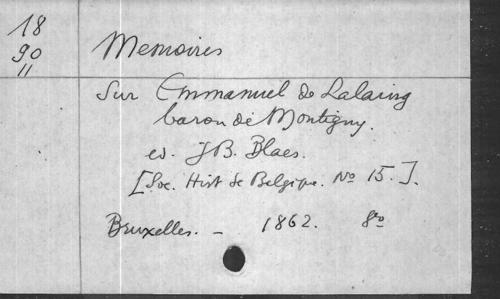 18
90
11
Memoires
Sur Emmanuel de Lalaing
baron de Montigny.
ed. J B. Blaes.
[Soc. Hist de Belgique. No 15.].
Bruxelles. – 1862. 8vo